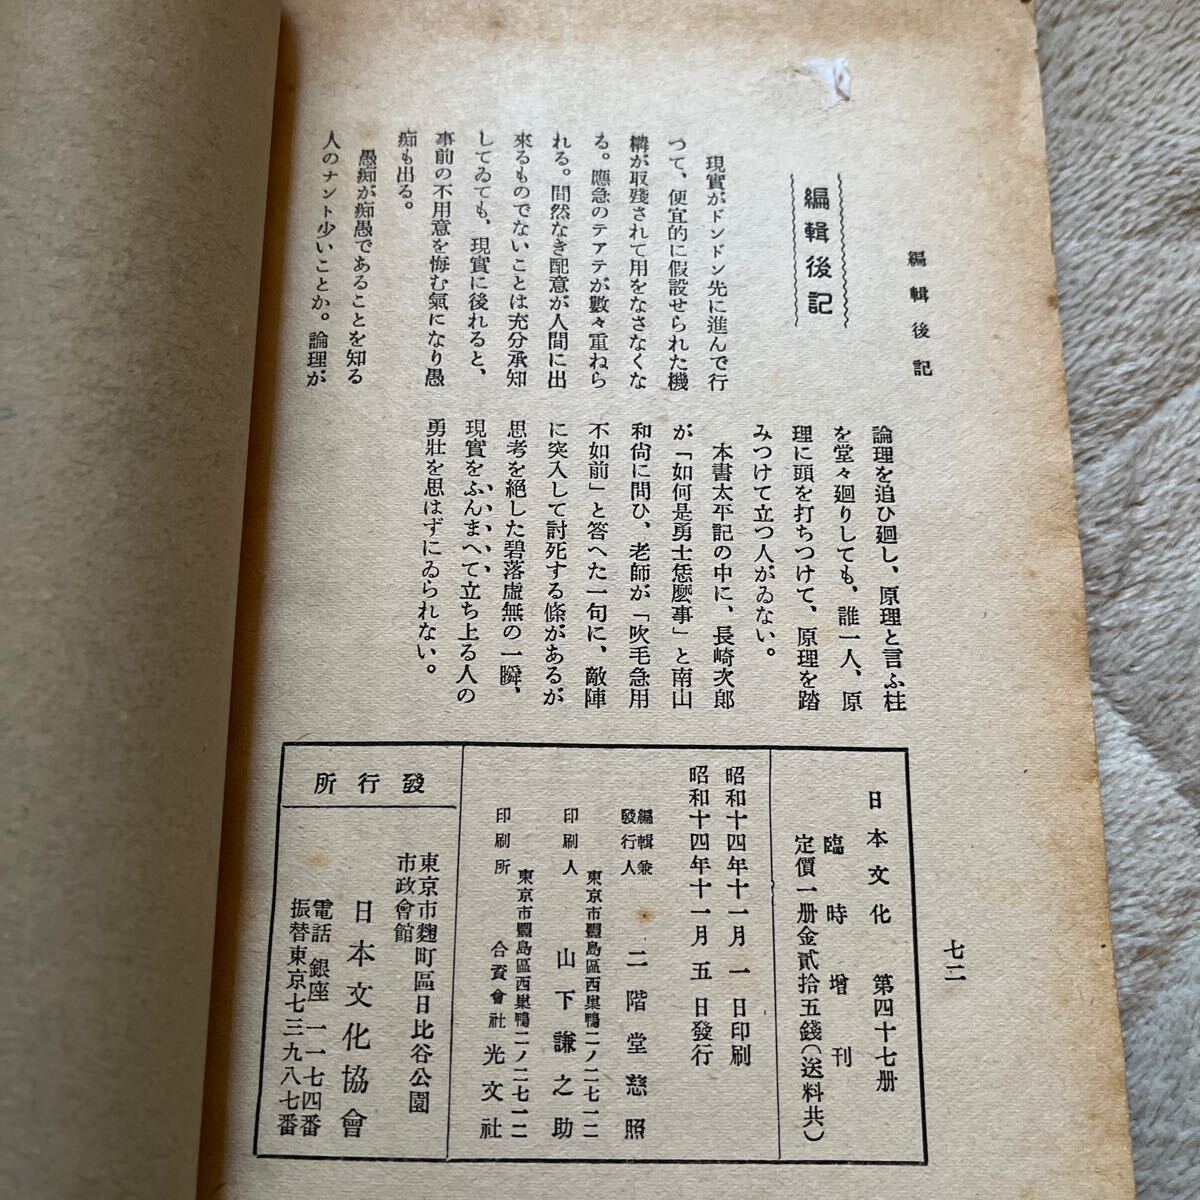 編輯後記
編輯後記
現實がドンドン先に進んで行
つて、便宜的に假設せられた機
構が取殘されて用をなさなくな
る。應急のテアテが數々重ねら
れる。間然なき配意が人間に出
來るものでないことは充分承知
してゐても、現實に後れると、
事前の不用意を悔む氣になり愚
痴も出る。
愚痴が痴愚であることを知る
人のナント少いことか。論理が
論理を追ひ廻し、原理と言ふ柱
を堂々廻りしても、誰一人、原
理に頭を打ちつけて、原理を踏
みつけて立つ人がゐない。
本書太平記の中に、長崎次郎
が「如何是勇士恁麽事」と南山
和尙に問ひ、老師が「吹毛急用
不如前」と答へた一句に、敵陣
に突入して討死する條があるが
思考を絕した碧落虛無の一瞬、
現實をふんまへて立ち上る人の
勇壯を思はずにゐられない。
七二
日本文化 第四十七册
臨時增刊
定價一册金貳拾五錢(送料共)
昭和十四年十一月一日印刷
昭和十四年十一月五日發行
編輯兼
發行人 二階堂慈照
東京市豐島區西巢鴨二ノ二七一二
印刷人 山下謙之助
東京市豐島區西巢鴨二ノ二七一二
印刷所 合資會社光文社
發行所
東京市麴町區日比谷公園
市政會館
日本文化協會
電話銀座一一七四番
振替東京七三九八七番